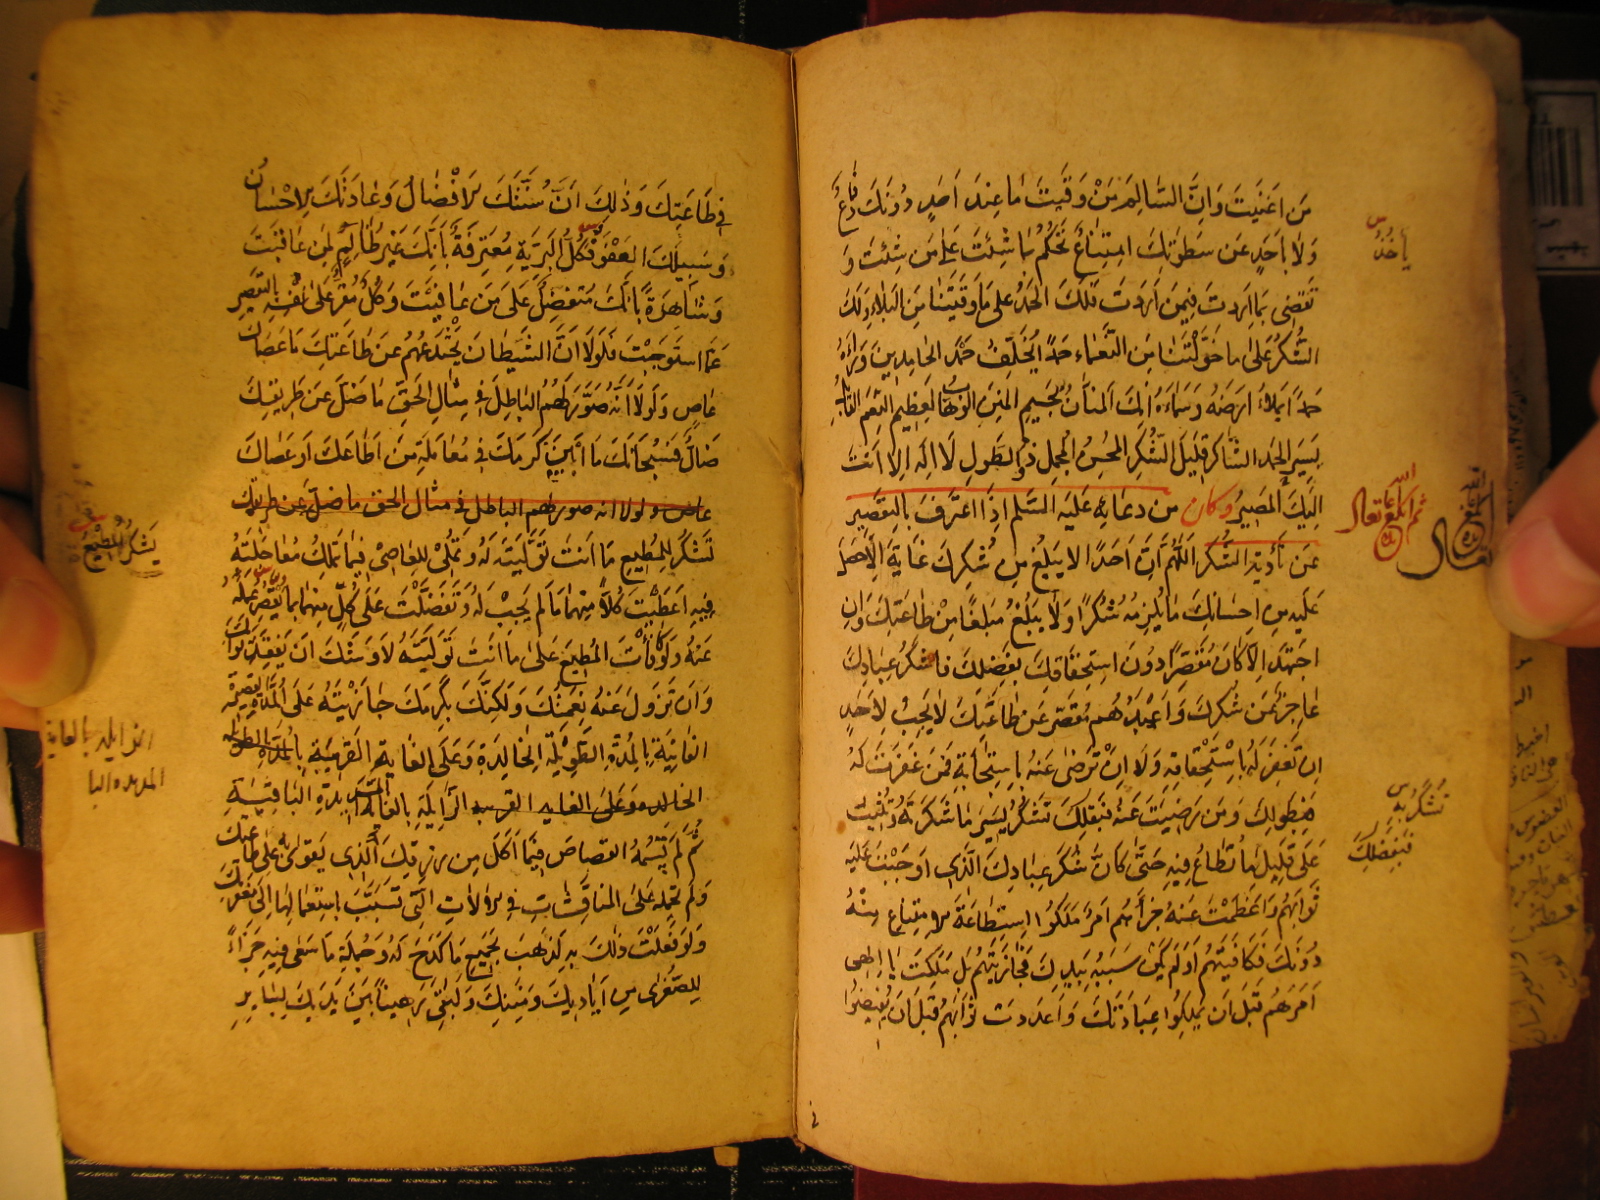 مَن اَغنَيتَ وَاِنَّ السَّالِمَ مَنْ وَقَيتَ مَا عِندَ اَحَدٍ دُونَكَ دِفَاعٌ
وَلَا بِاَحَدٍ عَن سَطوَتِكَ امتِنَاعٌ تَحكُمُ بِمَا شِئتَ عَلَى مَن شِئتَ وَ
تَقضِى بِمَا اَرَدتَ فِيمَن اَرَدتَ فَلَكَ الحَمدُ عَلى مَا وَقَيتَنَا مِنَ البَلَاءِ وَلَكَ
الشُّكرُ عَلَى مَا خَوَّلْتَنَا مِنَ النَّعمَاء حَمدًا يُخَلِّفُ حَمدَ الحَامِدِينَ وَرَاءَهُ
حَمدًا يَملَاُ اَرضَهُ وَسَمَاءَهُ اِنَّكَ المَنَّانُ بِجَسِيمِ المِنَنِ الوَهَّابُ لِعَظِيمِ النِّعَمِ القَابِلُ
يَسِيرَ الحَمدِ الشَّاكِرُ قَلِيلَ الشُّكرِ المُحسِنُ المُجمِلُ ذُو الطَّولِ لَا اِلَهَ اِلَّا اَنتَ
اِلَيكَ المَصِيرُ وكان من دعائه عليه السَّلم اِذَا اعتَرَفَ بِالتَّقصِيرِ
عَن تَأدِيَةِ الشُّكرِ اللَّهُمَّ اِنَّ اَحَدًا لَا يَبلُغُ مِن شُكرِكَ غَايَةً اِلَّا حَصَلَ
عَلَيهِ مِن اِحسَانِكَ مَا يُلزِمُهُ شُكرًا وَلَا يَبلُغُ مَبلَغًا مِن طَاعَتِكَ وَاِنِ
اجتَهَدَ اِلَّا كَانَ مُقَصِّرًا دُونَ استِحقَاقِكَ بِفَضلِكَ فَاَشكَرُ عِبَادِكَ
عَاجِزٌ عَن شُكرِكَ وَاَعبَدُهُم مُقَصِّرٌ عَن طَاعَتِكَ لَا يَجِبُ لِاَحَدٍ
اَن تَغفِرَ لَهُ بِاستِحقَاقِهِ وَلَا اَن تَرضَى عَنهُ بِاستِيجَابِهِ فَمَن غَفَرتَ لَهُ
فَبِطَولِكَ وَمَن رَضِيتَ عَنهُ فَبِفَضلِكَ تَشكُرُ يَسِيرَ مَا شَكَرتَهُ وَتُثِيبُ
عَلَى قَلِيلِ مَا تُطَاعُ فِيهِ حَتَّى كَاَنَّ شُكرَ عِبَادِكَ الَّذِى اَوجَبتَ عَلَيهِ
ثَوَابَهُم وَاَعظَمتَ عَنهُ جَزَاءَهُم اَمرٌ مَلَكُوا استِطَاعَةَ الاِمتِنَاعِ مِنهُ
دُونَكَ فَكَافَيتَهُم اَو لَم يَكُن سَبَبُهُ بِيَدِكَ فَجَازَيتَهُم بَل مَلَكتَ يَا اِلَهِى
اَمرَهُم قَبلَ اَن يَملِكُوا عِبَادَتَكَ وَاَعدَدتَ ثَوَابَهُم قَبلَ اَن يُفِيضُوا
يَأخُذُ
تَشكُرُ بِهِ
فَبِفَضلِكَ
فِى طَاعَتِكَ وَذَلِكَ اَنَّ سُنَّتَكَ الاِفضَالُ وَعَادَتَكَ الاِحسَانُ
وَسَبِيلَكَ العَفوُ فَكُلُّ البَرِيَّةِ مُعتَرِفَةٌ بِاَنَّكَ غَيرُ ظَالِمٍ لِمَن عَاقَبتَ
وَشَاهِدَةٌ بِاَنَّكَ مُتَفَضِّلٌ عَلَى مَن عَافَيتَ وَكُلٌّ مُقِرٌّ عَلَى نَفسِهِ بِالتَّقصِيرِ
عَمَّا استَوجَبتَ فَلَولَا اَنَّ الشَّيطَانَ يَختَدِعُهُم عَن طَاعَتِكَ مَا عَصَاكَ
عَاصٍ وَلَولَا اَنَّهُ صَوَّرَ لَهُمُ البَاطِلَ فِى مِثَالِ الحَقِّ مَا ضَلَّ عَن طَرِيقِكَ
ضَالٌّ فَسُبحَانَكَ مَا اَبيَنَ كَرَمَكَ فِى مُعَامَلَةِ مَن اَطَاعَكَ اَو عَصَاكَ
عاص ولولا انه صور لهم الباطل فى مثال الحق ما ضل عن طريقك
تَشكُرُ لِلمُطِيعِ مَا اَنتَ تَوَلَّيتَهُ لَهُ وَتُملِى لِلعَاصِى فِيمَا تَملِكُ مُعَاجَلَتَهُ
فِيهِ اَعطَيتَ كُلًّا مِنهُمَا مَا لَم يَجِب لَهُ وَتَفَضَّلتَ عَلَى كُلٍّ مِنهُمَا بِمَا يَقصُرُ عَمَلُهُ
عَنهُ وَلَو كَافَأتَ المُطِيعَ عَلَى مَا اَنتَ تَوَلَّيتَهُ لَاَوشَكَ اَن يَفقِدَ ثَوَابَكَ
وَاَن تَزُولَ عَنهُ نِعمَتُكَ وَلَكِنَّكَ بِكَرَمِكَ جَازَيتَهُ عَلَى المُدَّةِ القَصِيرَةِ
الفَانِيَةِ بِالمُدَّةِ الطَّوِيلَةِ الخَالِدَةِ وَعَلَى الغَايَةِ القَرِيبَةِ بالمدة الطويلة
الخالدة وعلى الغاية القريبة الزَّايِلَةِ بِالغَايَةِ المَدِيدَةِ البَاقِيَةِ
ثُمَّ لَم تَسُمهُ القِصَاصَ فِيمَا اَكَلَ مِن رِزقِكَ الَّذِى يَقوَى بِهِ عَلَى طَاعَتِكَ
وَلَم تَحمِلهُ عَلَى المُنَاقَشَاتِ فِى الآلَاتِ الَّتِى تَسَبَّبَ بِاستِعمَالِهَا اِلَى مَغفِرَتِكَ
وَلَو فَعَلتَ ذَلِكَ بِهِ لَذَهَبَ بِجَمِيعِ مَا كَدَحَ لَهُ وَجُملَةِ مَا سَعَى فِيهِ جَزَاءً
لِلصُّغرَى مِن اَيَادِيكَ وَمِنَنِكَ وَلَبَقِىَ رَهِينًا بَينَ يَدَيكَ بِسَائِرِ
يَشكُرُ المُطِيعُ
الزايله بالغاية
المديده البا